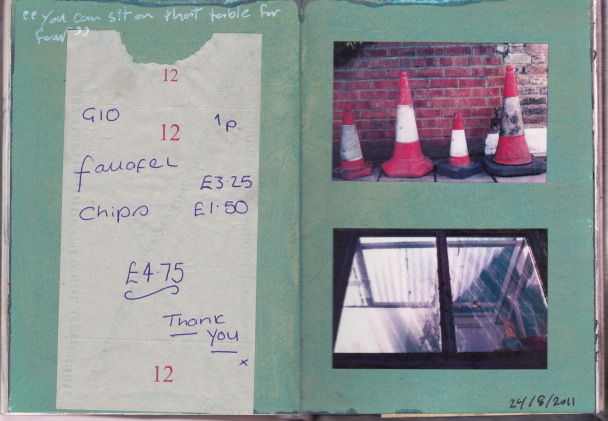 “You can sit on that table for
four”
12
G10
12
1p
falafel
£3.25
Chips £1.50
£4.75
Thank
you
x
12
24/8/2011